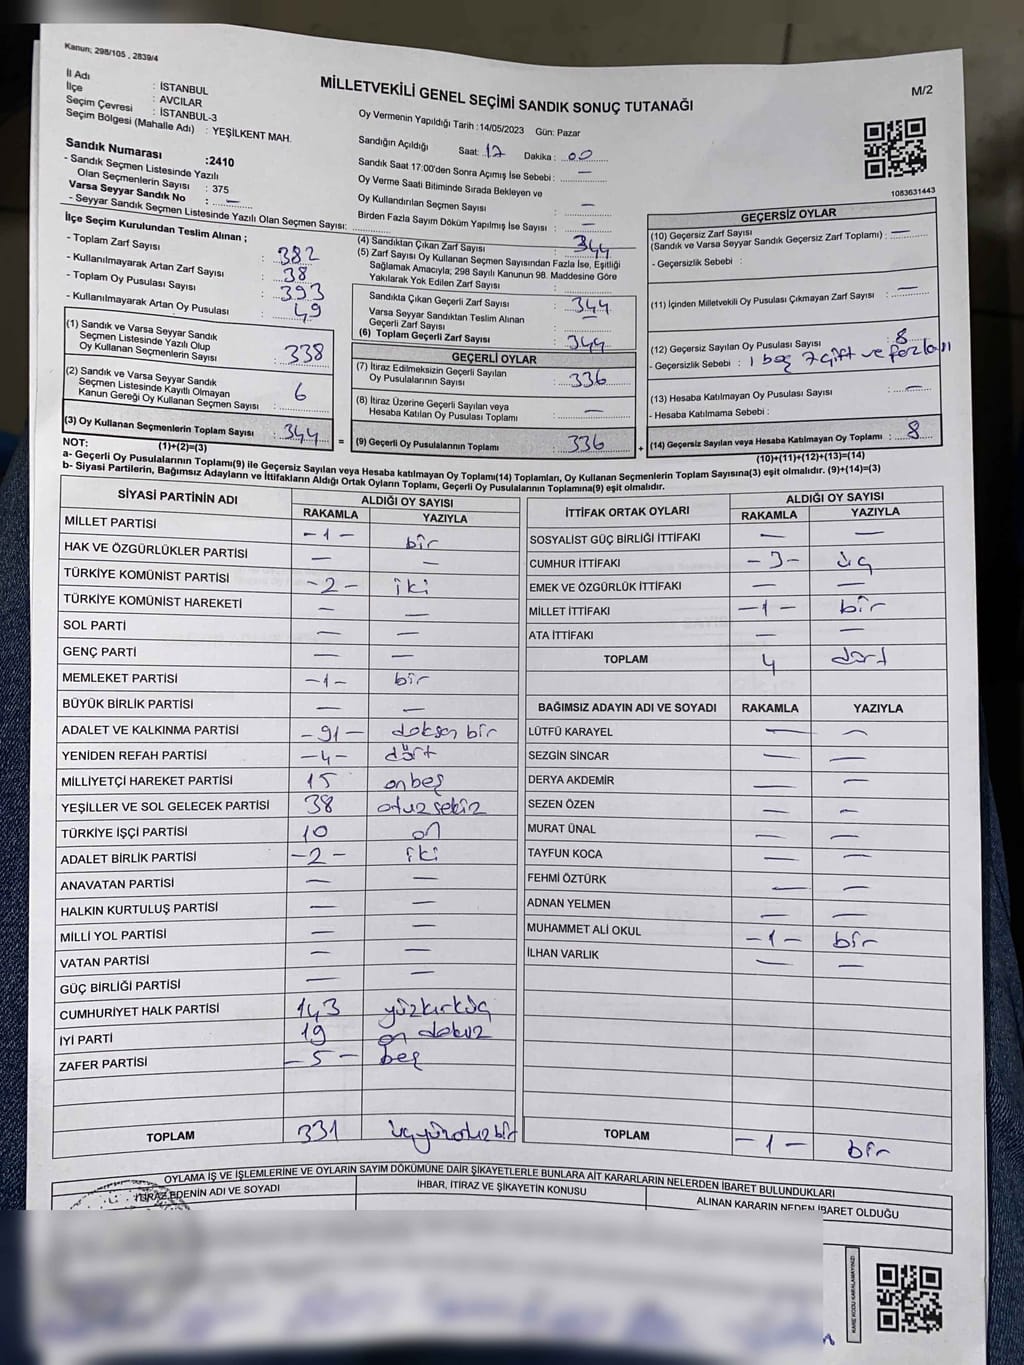 Kanun; 298/105 , 2839/4
MİLLETVEKİLİ GENEL SEÇİMİ SANDIK SONUÇ TUTANAĞI
M/2
İl Adı : İSTANBUL
İlçe : AVCILAR
Seçim Çevresi : İSTANBUL-3
Seçim Bölgesi (Mahalle Adı) : YEŞİLKENT MAH.
Sandık Numarası :2410
- Sandık Seçmen Listesinde Yazılı
Olan Seçmenlerin Sayısı : 375
Varsa Seyyar Sandık No : —
- Seyyar Sandık Seçmen Listesinde Yazılı Olan Seçmen Sayısı:
Oy Vermenin Yapıldığı Tarih :14/05/2023 Gün: Pazar
Sandığın Açıldığı Saat: 17 Dakika : 00
Sandık Saat 17:00'den Sonra Açımış İse Sebebi : —
Oy Verme Saati Bitiminde Sırada Bekleyen ve
Oy Kullandırılan Seçmen Sayısı : —
Birden Fazla Sayım Döküm Yapılmış İse Sayısı : —
1083631443
İlçe Seçim Kurulundan Teslim Alınan ;
- Toplam Zarf Sayısı : 382
- Kullanılmayarak Artan Zarf Sayısı : 38
- Toplam Oy Pusulası Sayısı : 393
- Kullanılmayarak Artan Oy Pusulası : 49
(1) Sandık ve Varsa Seyyar Sandık
Seçmen Listesinde Yazılı Olup
Oy Kullanan Seçmenlerin Sayısı : 338
(2) Sandık ve Varsa Seyyar Sandık
Seçmen Listesinde Kayıtlı Olmayan
Kanun Gereği Oy Kullanan Seçmen Sayısı : 6
(3) Oy Kullanan Seçmenlerin Toplam Sayısı : 344
(1)+(2)=(3)
(4) Sandıktan Çıkan Zarf Sayısı : 344
(5) Zarf Sayısı Oy Kullanan Seçmen Sayısından Fazla İse, Eşitliği
Sağlamak Amacıyla; 298 Sayılı Kanunun 98. Maddesine Göre
Yakılarak Yok Edilen Zarf Sayısı :
Sandıkta Çıkan Geçerli Zarf Sayısı : 344
Varsa Seyyar Sandıktan Teslim Alınan
Geçerli Zarf Sayısı : —
(6) Toplam Geçerli Zarf Sayısı : 344
GEÇERLİ OYLAR
(7) İtiraz Edilmeksizin Geçerli Sayılan
Oy Pusulalarının Sayısı : 336
(8) İtiraz Üzerine Geçerli Sayılan veya
Hesaba Katılan Oy Pusulası Toplamı : —
= (9) Geçerli Oy Pusulalarının Toplamı : 336
GEÇERSİZ OYLAR
(10) Geçersiz Zarf Sayısı
(Sandık ve Varsa Seyyar Sandık Geçersiz Zarf Toplamı) : —
- Geçersizlik Sebebi :
(11) İçinden Milletvekili Oy Pusulası Çıkmayan Zarf Sayısı : —
(12) Geçersiz Sayılan Oy Pusulası Sayısı : 8
- Geçersizlik Sebebi : 1 boş 7 çift ve fazlası
(13) Hesaba Katılmayan Oy Pusulası Sayısı : —
- Hesaba Katılmama Sebebi :
+ (14) Geçersiz Sayılan veya Hesaba Katılmayan Oy Toplamı : 8
(10)+(11)+(12)+(13)=(14)
NOT:
a- Geçerli Oy Pusulalarının Toplamı(9) ile Geçersiz Sayılan veya Hesaba katılmayan Oy Toplamı(14) Toplamları, Oy Kullanan Seçmenlerin Toplam Sayısına(3) eşit olmalıdır. (9)+(14)=(3)
b- Siyasi Partilerin, Bağımsız Adayların ve İttifakların Aldığı Ortak Oyların Toplamı, Geçerli Oy Pusulalarının Toplamına(9) eşit olmalıdır.
SİYASİ PARTİNİN ADI ALDIĞI OY SAYISI
RAKAMLA YAZIYLA
MİLLET PARTİSİ -1- bir
HAK VE ÖZGÜRLÜKLER PARTİSİ — —
TÜRKİYE KOMÜNİST PARTİSİ -2- iki
TÜRKİYE KOMÜNİST HAREKETİ — —
SOL PARTİ — —
GENÇ PARTİ — —
MEMLEKET PARTİSİ -1- bir
BÜYÜK BİRLİK PARTİSİ — —
ADALET VE KALKINMA PARTİSİ -91- doksan bir
YENİDEN REFAH PARTİSİ -4- dört
MİLLİYETÇİ HAREKET PARTİSİ 15 onbeş
YEŞİLLER VE SOL GELECEK PARTİSİ 38 otuzsekiz
TÜRKİYE İŞÇİ PARTİSİ 10 on
ADALET BİRLİK PARTİSİ -2- iki
ANAVATAN PARTİSİ — —
HALKIN KURTULUŞ PARTİSİ — —
MİLLİ YOL PARTİSİ — —
VATAN PARTİSİ — —
GÜÇ BİRLİĞİ PARTİSİ — —
CUMHURİYET HALK PARTİSİ 143 yüzkırküç
İYİ PARTİ 19 on dokuz
ZAFER PARTİSİ -5- beş
TOPLAM 331 üçyüzotuzbir
İTTİFAK ORTAK OYLARI ALDIĞI OY SAYISI
RAKAMLA YAZIYLA
SOSYALİST GÜÇ BİRLİĞİ İTTİFAKI — —
CUMHUR İTTİFAKI -3- üç
EMEK VE ÖZGÜRLÜK İTTİFAKI — —
MİLLET İTTİFAKI -1- bir
ATA İTTİFAKI — —
TOPLAM 4 dört
BAĞIMSIZ ADAYIN ADI VE SOYADI RAKAMLA YAZIYLA
LÜTFÜ KARAYEL — —
SEZGİN SİNCAR — —
DERYA AKDEMİR — —
SEZEN ÖZEN — —
MURAT ÜNAL — —
TAYFUN KOCA — —
FEHMİ ÖZTÜRK — —
ADNAN YELMEN — —
MUHAMMET ALİ OKUL -1- bir
İLHAN VARLIK — —
TOPLAM -1- bir
OYLAMA İŞ VE İŞLEMLERİNE VE OYLARIN SAYIM DÖKÜMÜNE DAİR ŞİKAYETLERLE BUNLARA AİT KARARLARIN NELERDEN İBARET BULUNDUKLARI
İTİRAZ EDENİN ADI VE SOYADI İHBAR, İTİRAZ VE ŞİKAYETİN KONUSU ALINAN KARARIN NEDEN İBARET OLDUĞU
KARE KODU KARALAMAYINIZ!